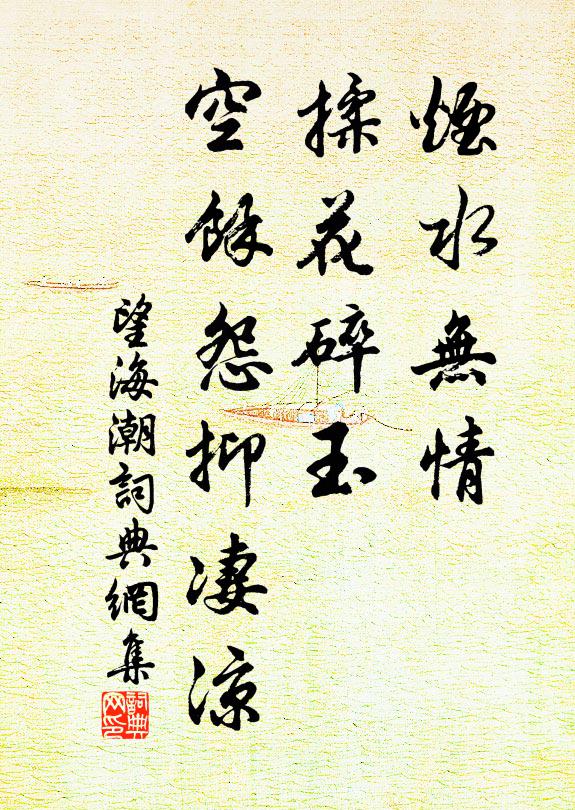 煙水無情
揉花碎玉
空餘怨抑凄涼
望海潮詞典網集
詞典
网印